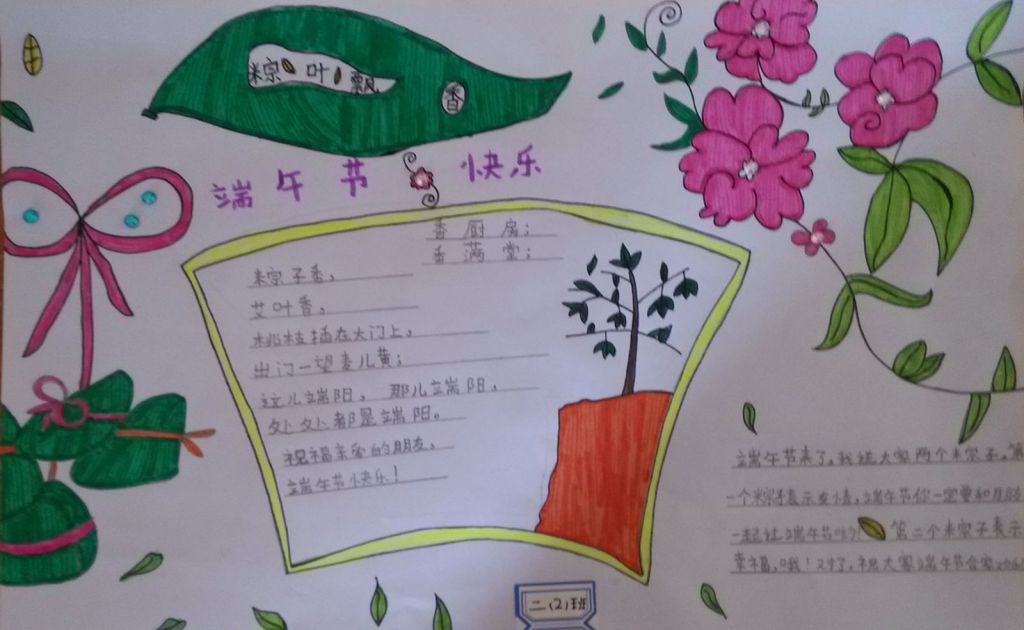 粽叶飘香
端午节快乐
香厨房；
香满堂；
粽子香，
艾叶香，
桃枝插在大门上，
出门一望麦儿黄；
这儿端阳，那儿端阳，
处处都是端阳。
祝福亲爱的朋友，
端午节快乐！
端午节来了，我送大家两个粽子，第
一个粽子表示友情，端午节你一定要和朋友
一起过端午节哟！第二个粽子表示
幸福，哦！对了，祝大家端午节合家
二(2)班